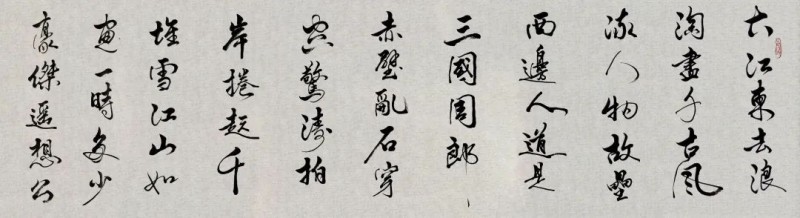 大江東去浪
淘盡千古風
流人物故壘
西邊人道是
三國周郎
赤壁亂石穿
空驚濤拍
岸捲起千
堆雪江山如
畫一時多少
豪傑遥想公